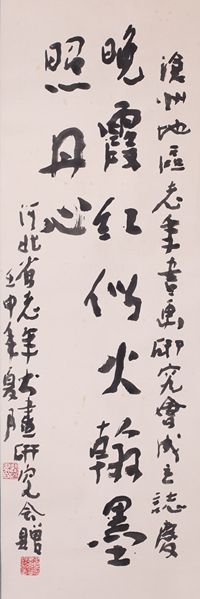 滄州地區老年書画研究會成立誌慶
晚霞紅似火翰墨
照丹心
河北省老年书畫研究会贈
壬申年夏月